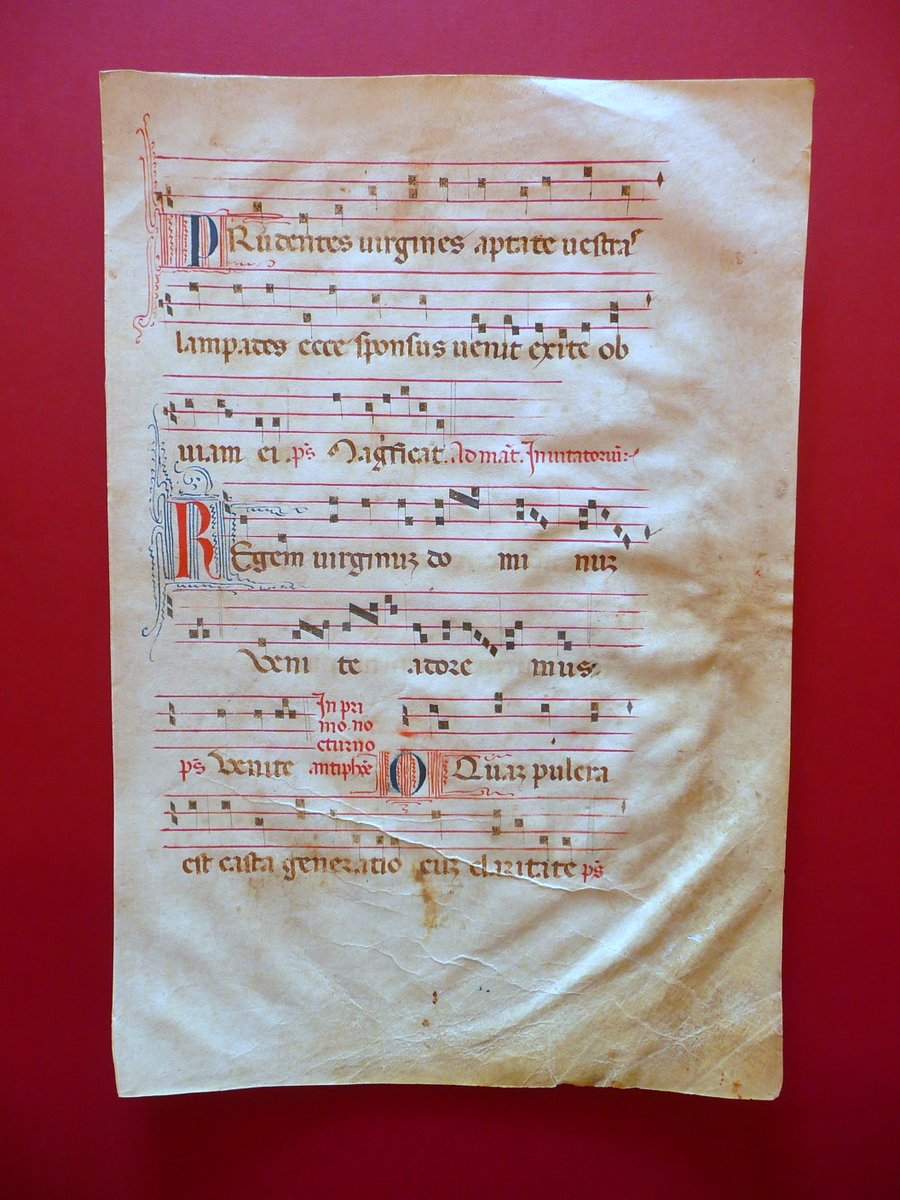 PRudentes uirgines aptate uestras
lampades ecce sponsus uenit exite ob
uiam ei. ps̄ Magnificat. Ad mat̄. Inuitatoriū:
REgem uirginuʒ do mi nuʒ
Veni te adore mus.
ps̄ Venite
In pri
mo no
cturno
antiphōe
O Quaʒ pulcra
est casta generatio cuʒ claritate ps̄